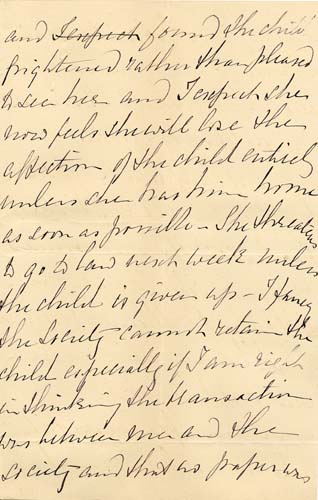 and I expect found the child
frightened rather than pleased
to see her and I expect she
now feels she will lose the
affection of the child entirely
unless she has him home
as soon as possible - She threatens
to go to law next week unless
the child is given up - I fancy
the Society cannot retain the
child especially if I am right
in thinking the transaction
was between me and the
Society and that as paper was